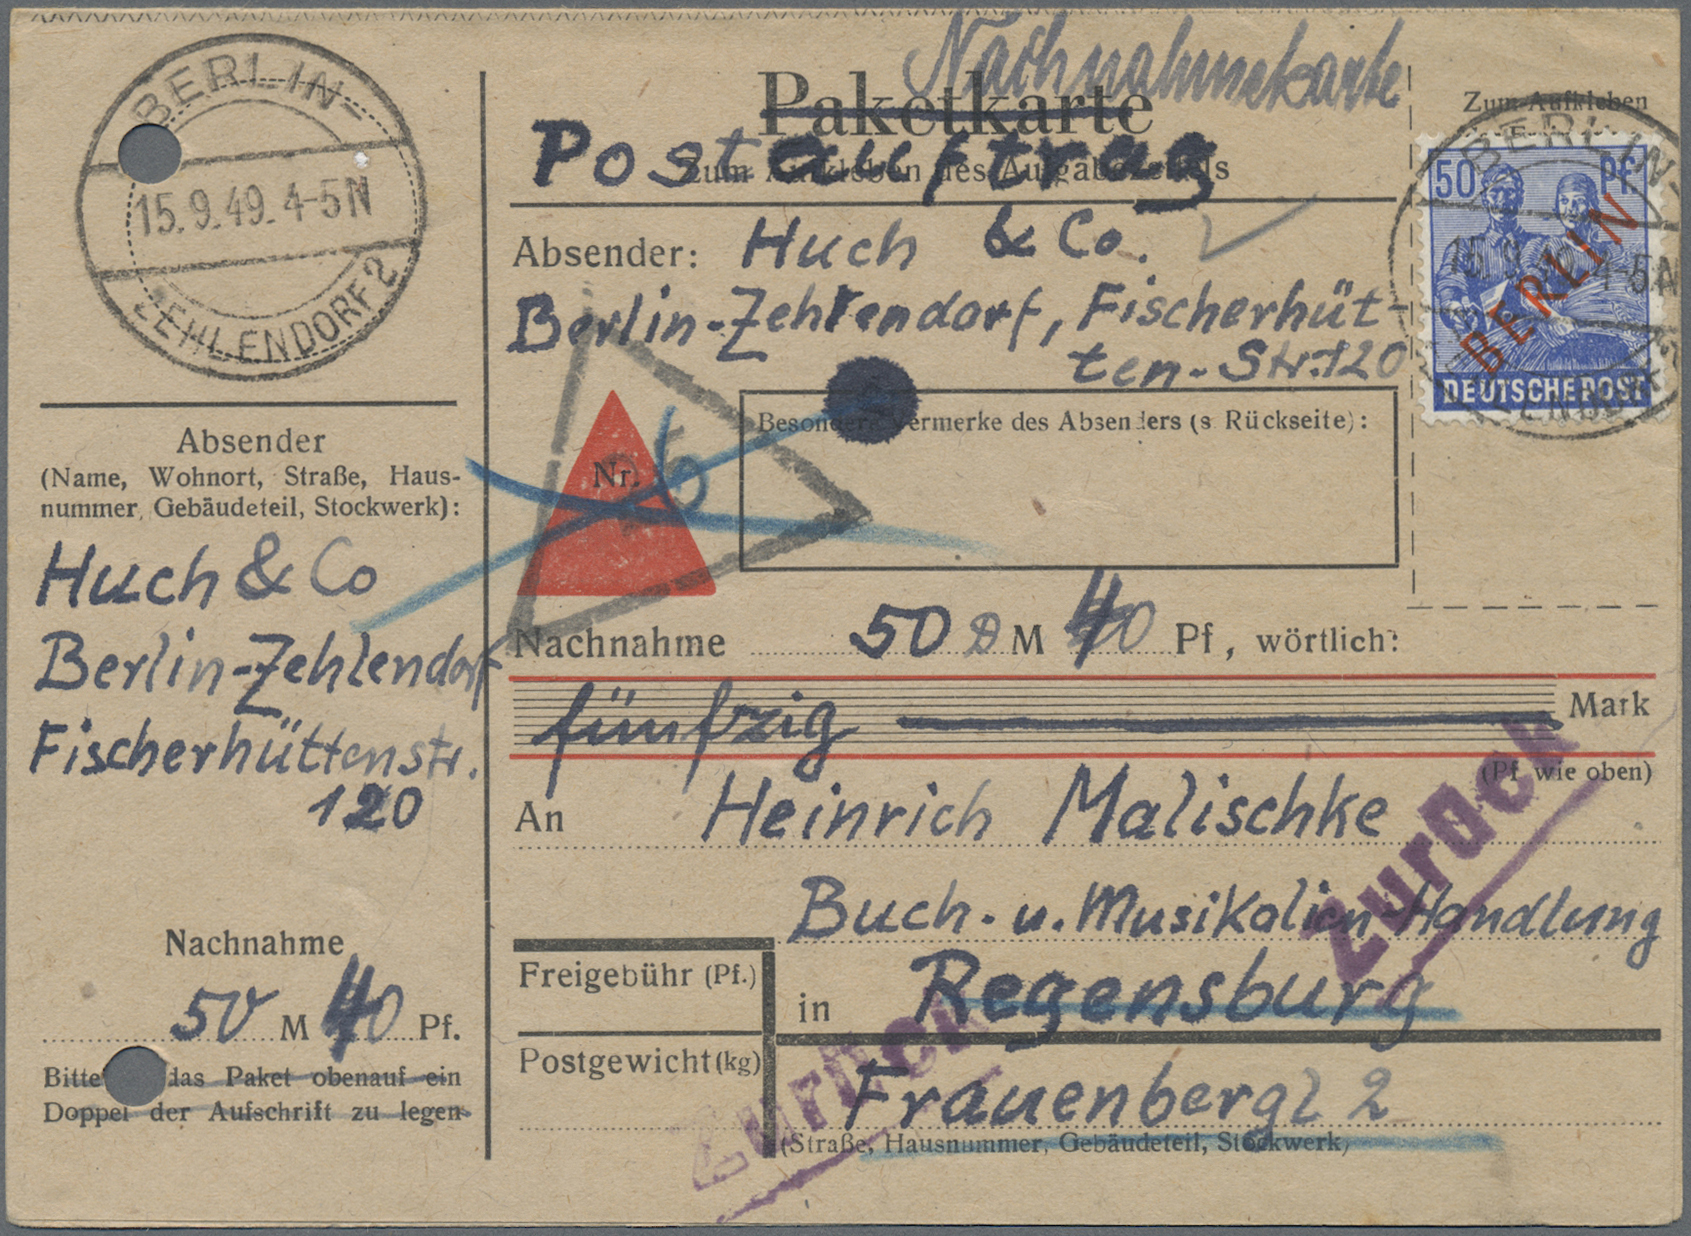 BERLIN-
15.9.49. 4-5N
ZEHLENDORF 2
Absender
(Name, Wohnort, Straße, Haus-
nummer, Gebäudeteil, Stockwerk):
Huch & Co
Berlin-Zehlendorf
Fischerhüttenstr.
120
Nachnahme
50 M 40 Pf.
Bitte das Paket obenauf ein
Doppel der Aufschrift zu legen
Nachnahmekarte
Paketkarte
Postauftrag
Zum Aufkleben des Ausgabezettels
Absender: Huch & Co.
Berlin-Zehlendorf, Fischerhüt-
ten-Str. 120
Nr.
Besondere Vermerke des Absenders (s. Rückseite):
Nachnahme 50 DM 40 Pf., wörtlich:
fünfzig Mark
(Pf. wie oben)
An Heinrich Malischke
Buch- u. Musikalien-Handlung
Freigebühr (Pf.)
in Regensburg
Postgewicht (kg)
Frauenbergl 2
(Straße, Hausnummer, Gebäudeteil, Stockwerk)
Zurück
Zurück
Zum Aufkleben
BERLIN-
50 Pf
BERLIN
15.9.49. 4-5N
DEUTSCHE POST